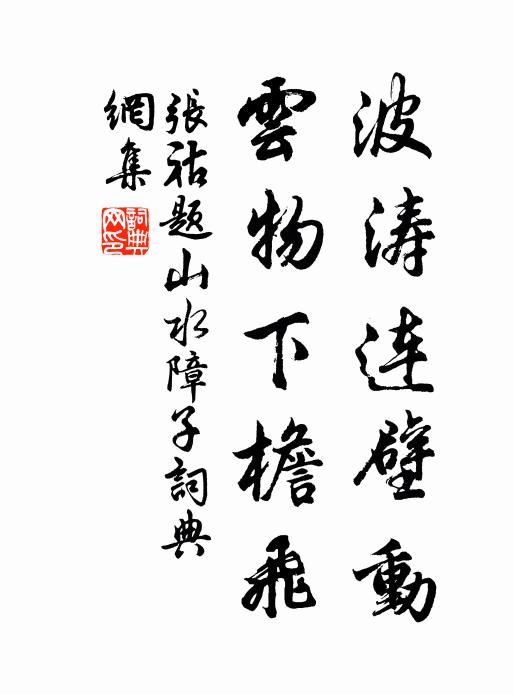 波涛连壁動
雲物下檐飛
張祜题山水障子詞典
網集
詞典网印